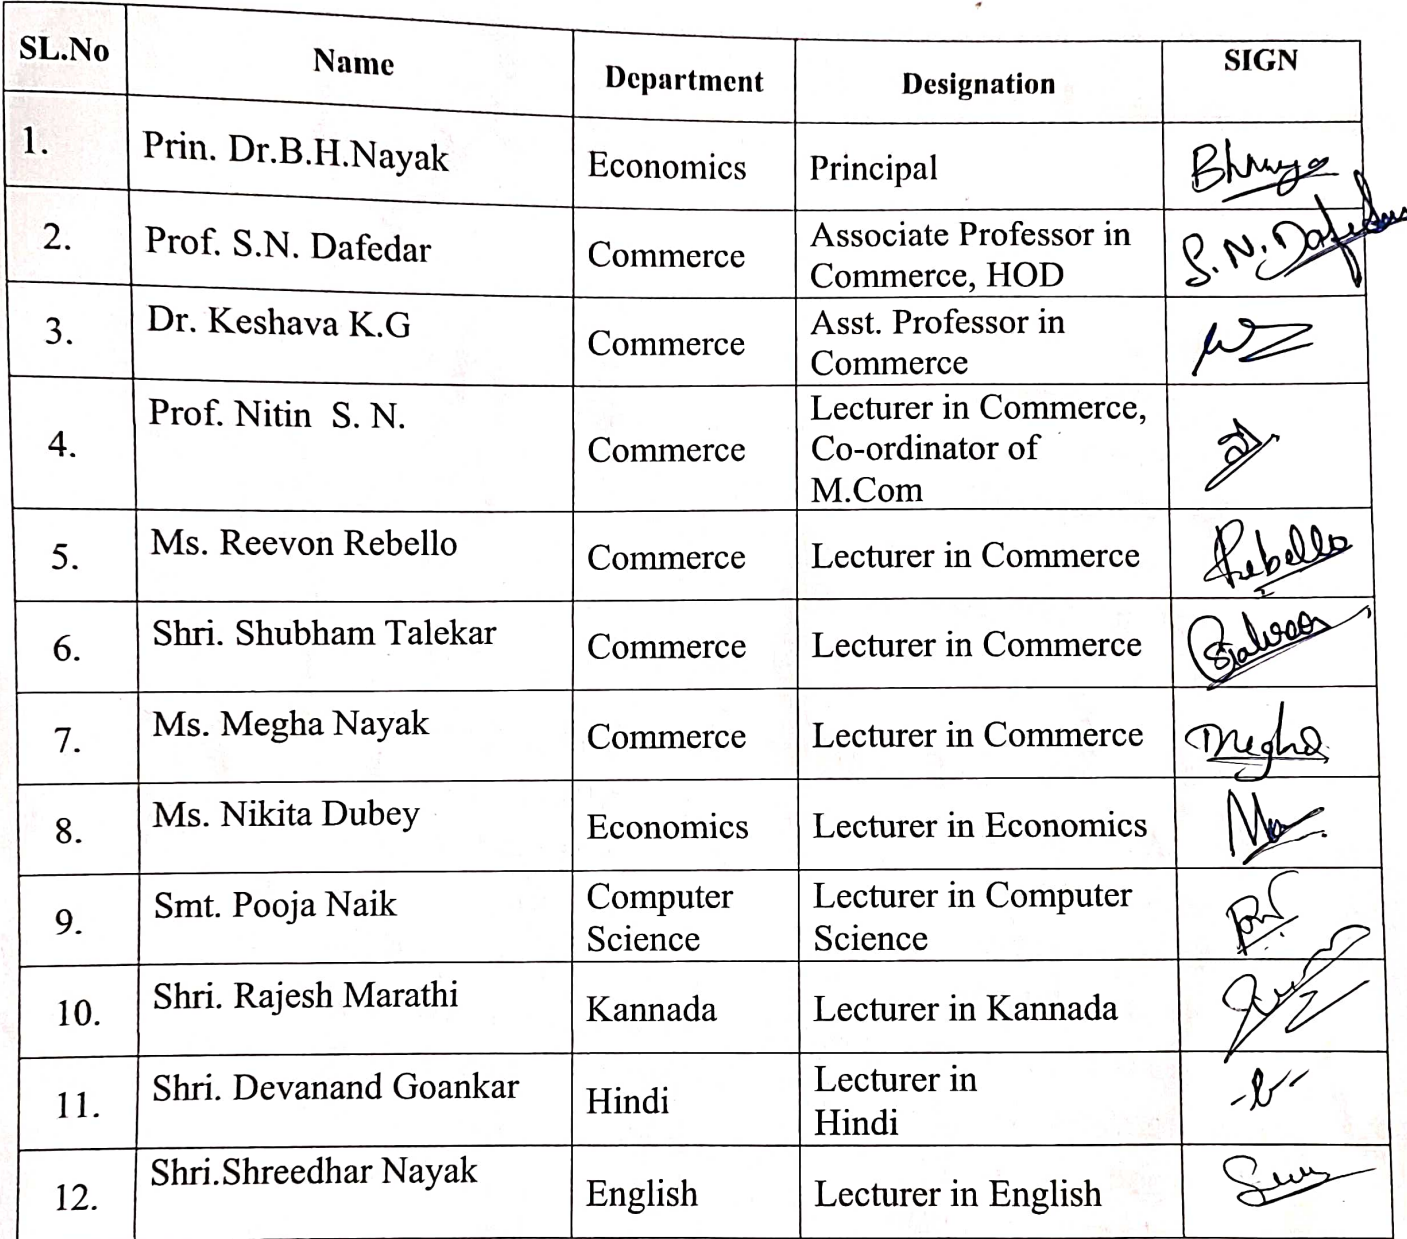 SL.No Name Department Designation SIGN
1. Prin. Dr.B.H.Nayak Economics Principal
2. Prof. S.N. Dafedar Commerce Associate Professor in
Commerce, HOD S.N. Dafedar
3. Dr. Keshava K.G Commerce Asst. Professor in
Commerce
4. Prof. Nitin S. N. Commerce Lecturer in Commerce,
Co-ordinator of
M.Com
5. Ms. Reevon Rebello Commerce Lecturer in Commerce Rebello
6. Shri. Shubham Talekar Commerce Lecturer in Commerce
7. Ms. Megha Nayak Commerce Lecturer in Commerce Megha
8. Ms. Nikita Dubey Economics Lecturer in Economics
9. Smt. Pooja Naik Computer
Science Lecturer in Computer
Science
10. Shri. Rajesh Marathi Kannada Lecturer in Kannada
11. Shri. Devanand Goankar Hindi Lecturer in
Hindi
12. Shri.Shreedhar Nayak English Lecturer in English